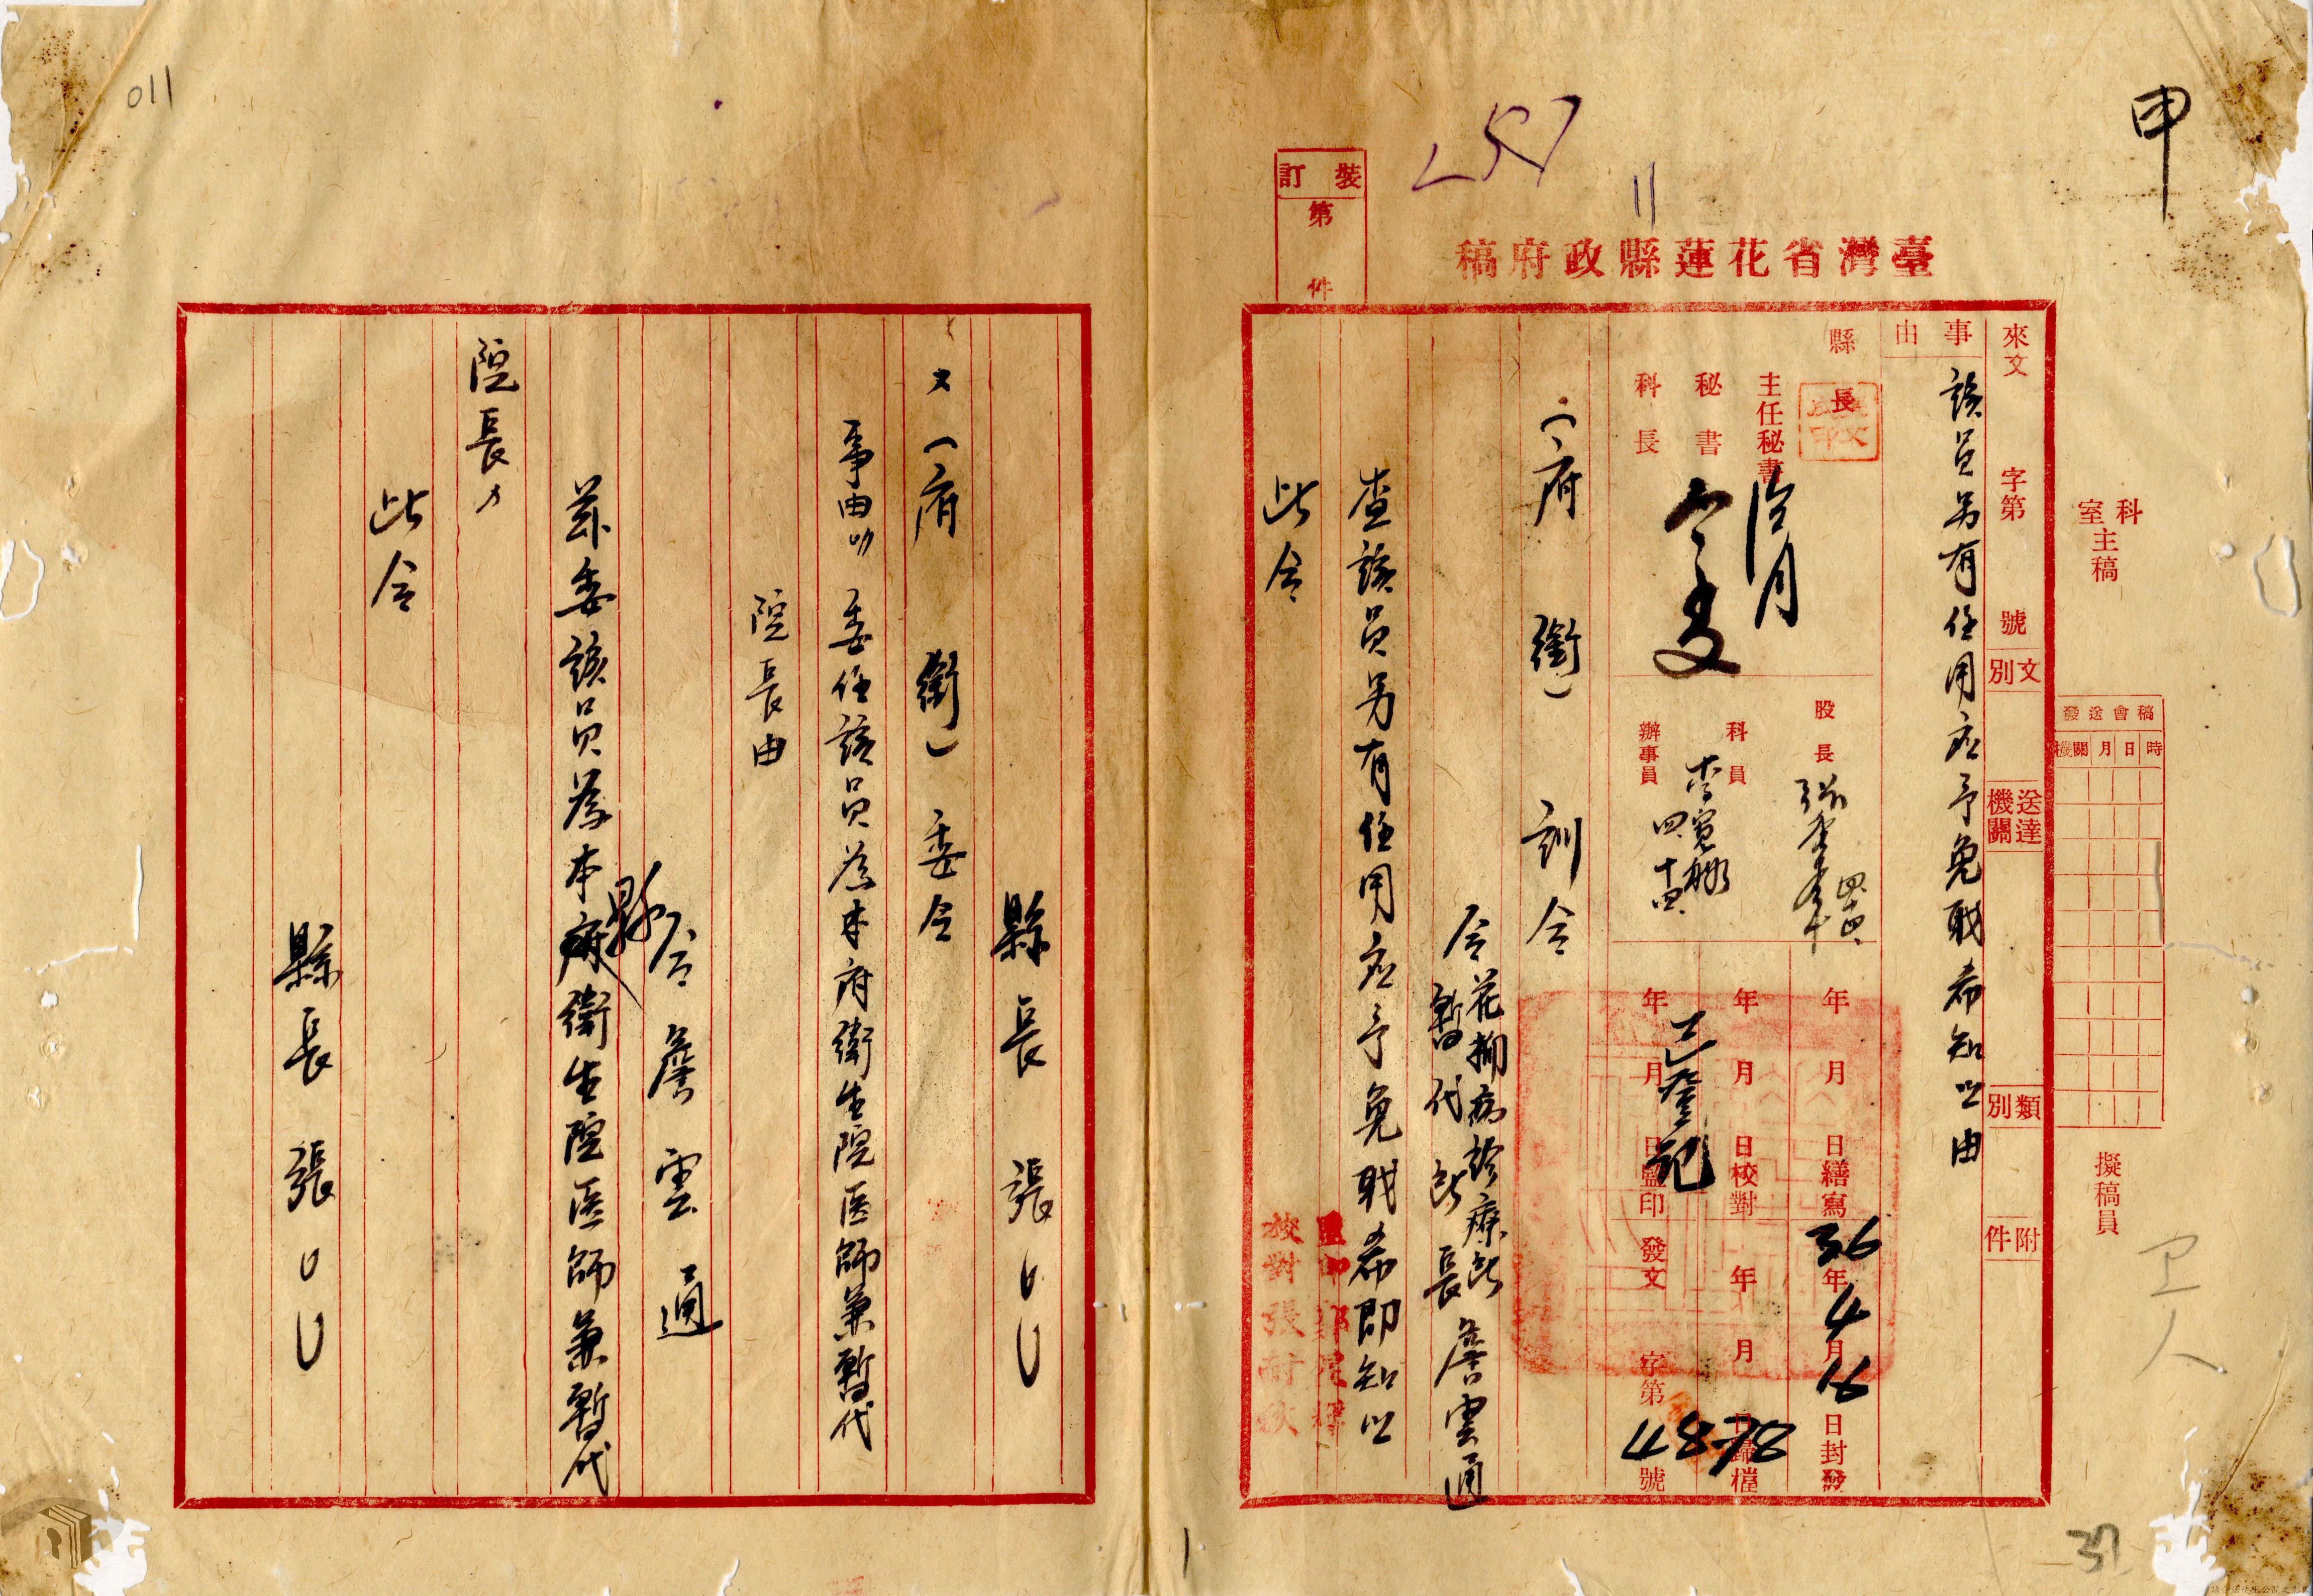 甲
257
11
臺灣省花蓮縣政府稿
裝訂
第 件
科室主稿
擬稿員
稿會送發
時日月機關
來文 字第 號
文別
送達機關
類別
附件
事由
該員另有任用应予免职希知照由
縣長
主任秘書
秘書
科長
股長
四.十四.
科員
辦事員
四.十四.
年 月 日繕寫
年 月 日校對
年 月 日蓋印
已登記
36年4月16日封發
年 月 日歸檔
發文 字第 號
(府 銜) 訓令
令花蓮 病診療所
暫代所長 詹雲通
查該員另有任用应予免职希即知照
此令
校對張
縣長 張
(府 銜) 委令
事由: 委任該員為本府衛生院医師兼暫代
院長由
令詹雲通
茲委該員為本縣衛生院医師兼暫代
院長。
此令
縣長 張
卫人
37
011